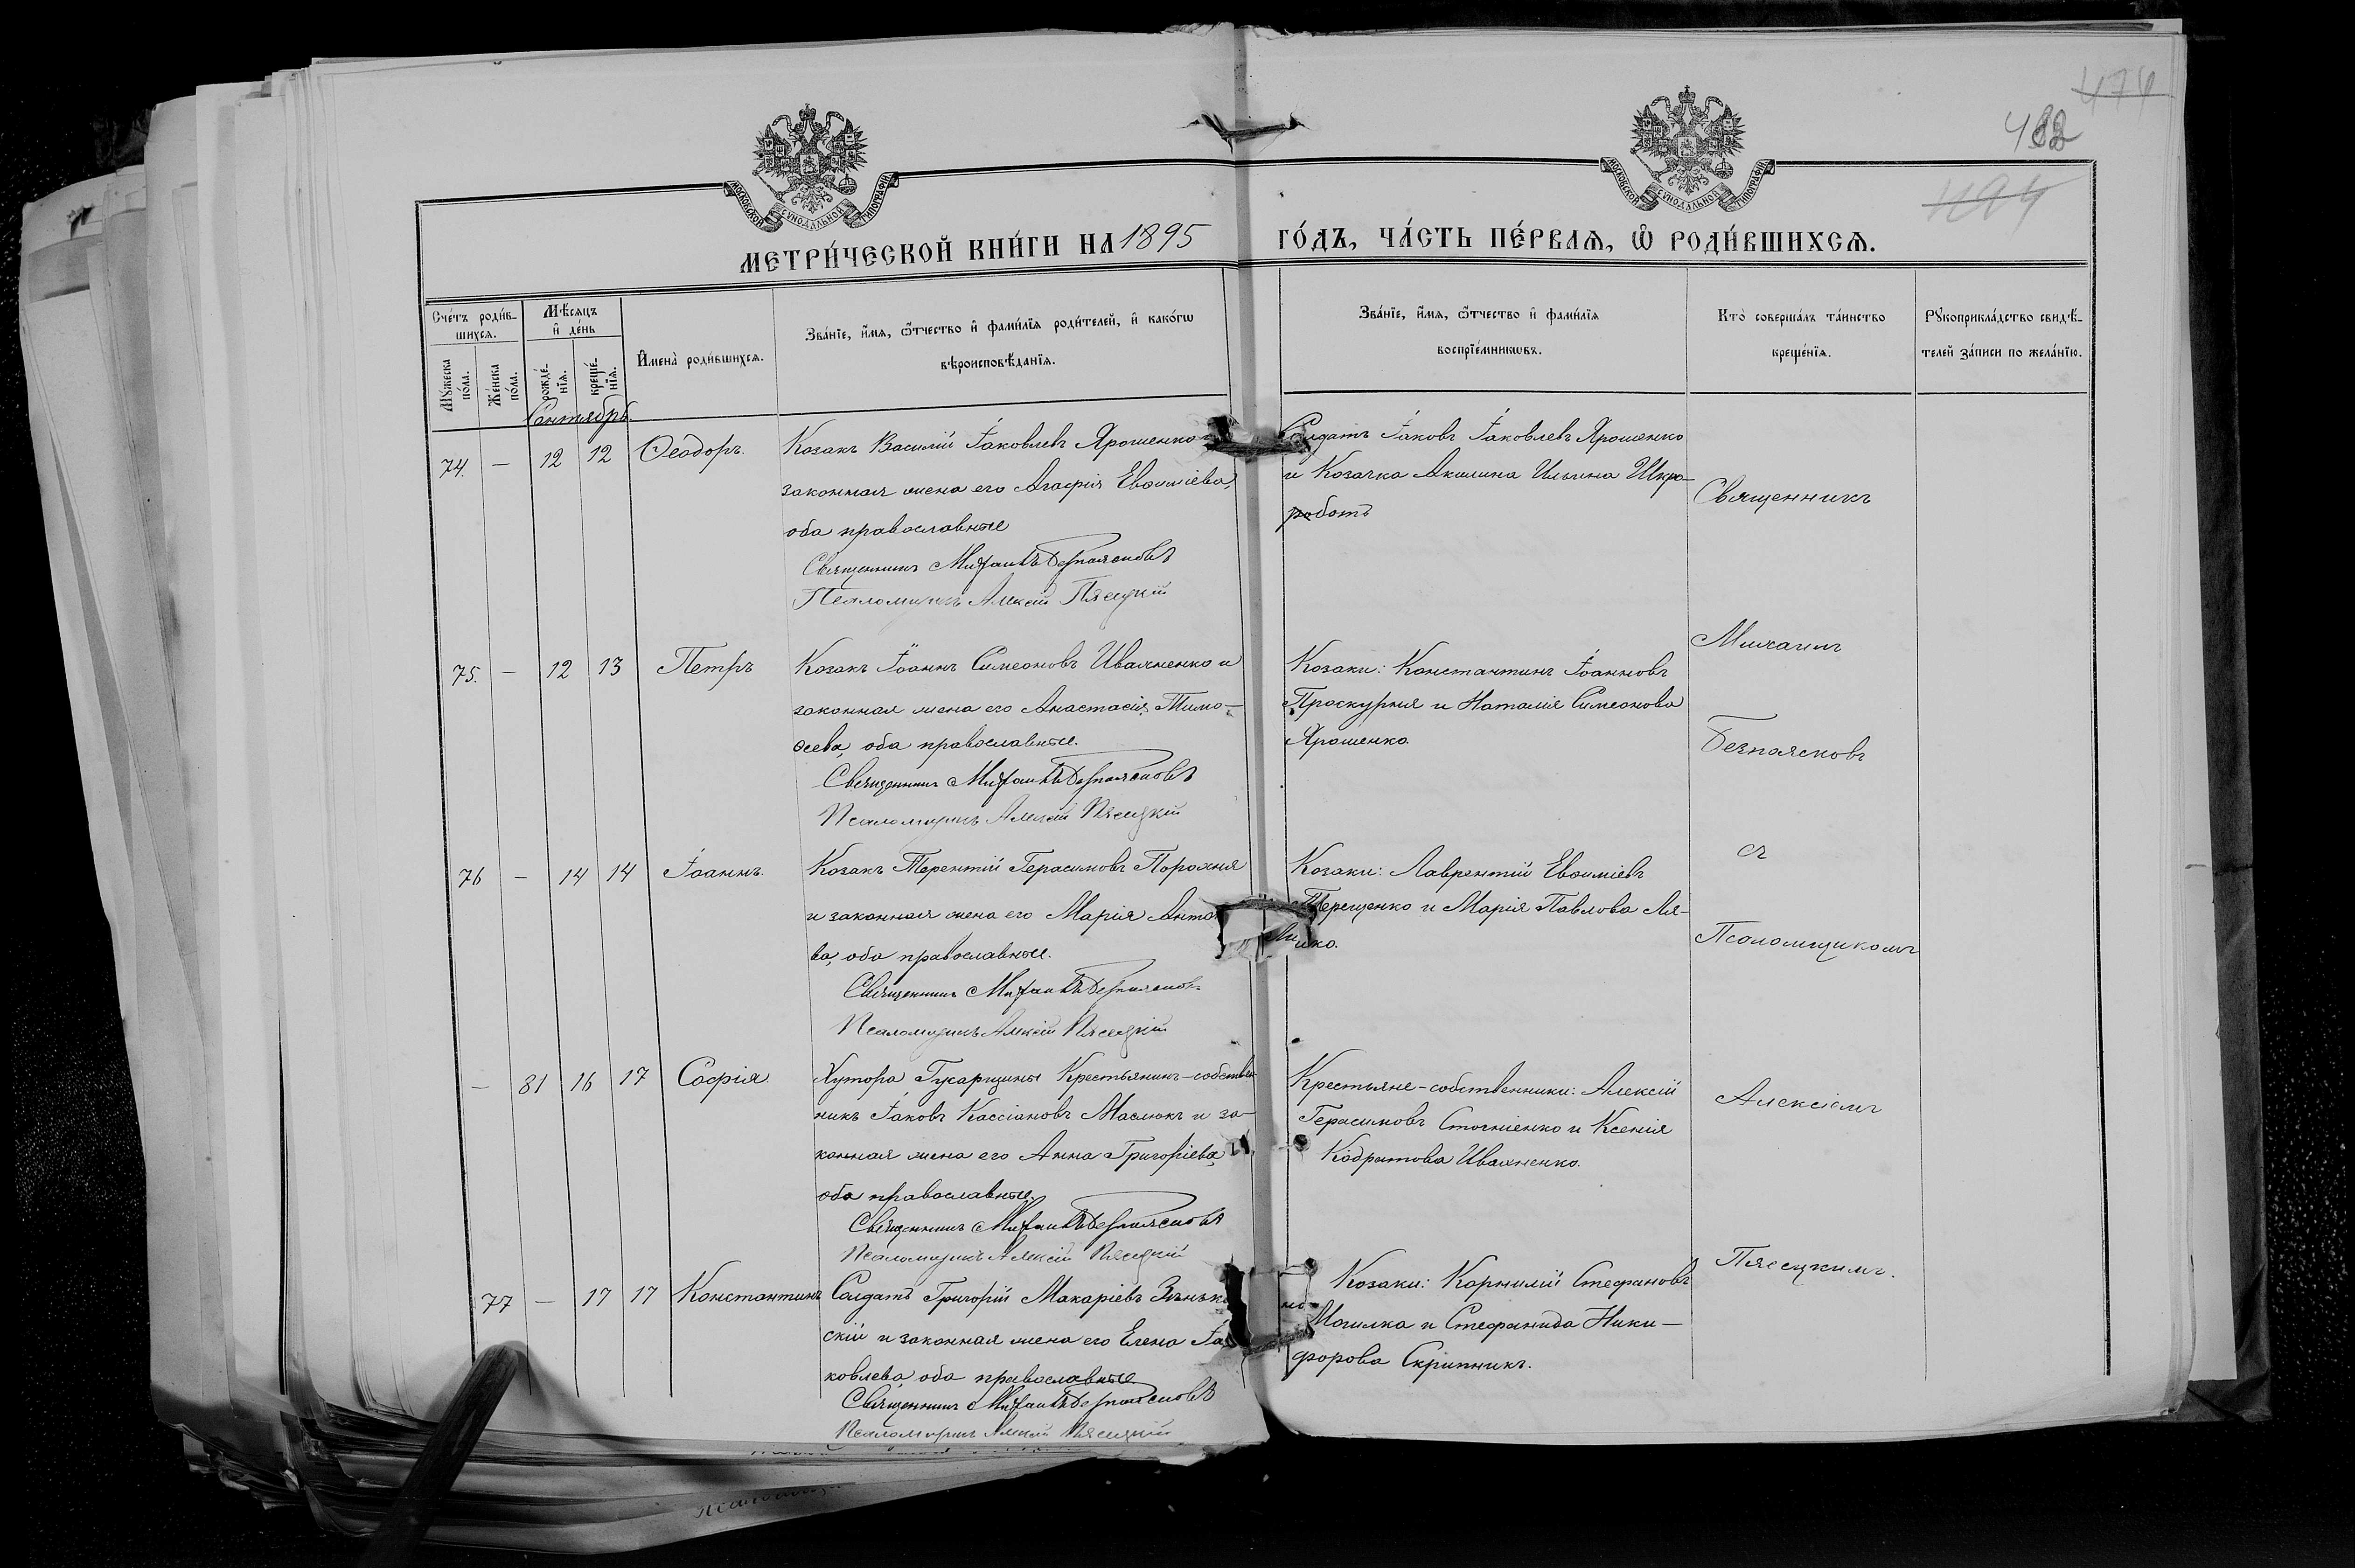 474
482
494
МОСКОВСКОЙ СУНОДАЛЬНОЙ ТИПОГРАФІИ
МОСКОВСКОЙ СУНОДАЛЬНОЙ ТИПОГРАФІИ
МЕТРИ́ЧЕСКОЙ КНИ́ГИ НА 1895 ГО́ДЪ, ЧА́СТЬ ПЕ́РВАѦ, Ѡ҆ РОДИ́ВШИХСѦ.
Сче́тъ роди́в-
шихсѧ.
Мꙋ́жеска по́ла.
Же́нска по́ла.
Мѣ́сѧцъ
и҆ де́нь
рожде́-нїѧ.
креще́-нїѧ.
И҆мена̀ роди́вшихсѧ.
Зва́нїе, и҆́мѧ, ѻ҆́тчество и҆ фами́лїѧ роди́телей, и҆ како́гѡ
вѣроисповѣ́данїѧ.
Зва́нїе, и҆́мѧ, ѻ҆́тчество и҆ фами́лїѧ
воспрїе́мникѡвъ.
Кто̀ соверша́лъ та́инство
креще́нїѧ.
Рꙋкоприкла́дство свидѣ́-
телей за́писи по жела́нїю.
Сентябрь.
74. — 12 12 Ѳеодоръ.
Козакъ Василій Іаковлевъ Ярошенко и
законная жена его Агафія Евѳиміева,
оба православные
Священникъ Михаилъ Безпоясковъ
Псаломщикъ Алексій Пясецкій
Солдатъ Іаковъ Іаковлевъ Ярошенко
и Козачка Акилина Ильина Шкро-
ботъ
75. — 12 13 Петръ
Козакъ Іоаннъ Симеоновъ Ивахненко и
законная жена его Анастасія Тимо-
ѳеева, оба православные.
Священникъ Михаилъ Безпоясковъ
Псаломщикъ Алексій Пясецкій
Козаки: Константинъ Іоанновъ
Проскурня и Наталія Симеонова
Ярошенко.
76 — 14 14 Іоаннъ.
Козакъ Терентій Герасимовъ Порохня
и законная жена его Марія Анто
ва, оба православные.
Священникъ Михаилъ Безпоясковъ
Псаломщикъ Алексій Пясецкій
Козаки: Лаврентій Евѳиміевъ
Терещенко и Марія Павлова Ля-
шко.
— 81 16 17 Софія.
Хутора Гусарщины Крестьянинъ-собствен
никъ Іаковъ Кассіановъ Маслюкъ и за-
конная жена его Анна Григоріева,
оба православные.
Священникъ Михаилъ Безпоясковъ
Псаломщикъ Алексій Пясецкій
Крестьяне-собственники: Алексій
Герасимовъ Стогніенко и Ксенія
Кодратова Ивахненко.
77 — 17 17 Константинъ
Солдатъ Григорій Макаріевъ Зѣньков
скій и законная жена его Елена Іа
ковлева, оба православные
Священникъ Михаилъ Безпоясковъ
Псаломщикъ Алексій Пясецкій
Козаки: Корнилій Стефановъ
Могилка и Стефанида Ники-
форова Скрипникъ.
Священникъ
Михаилъ
Безпоясковъ
съ
Псаломщикомъ
Алексіемъ
Пясецкимъ.